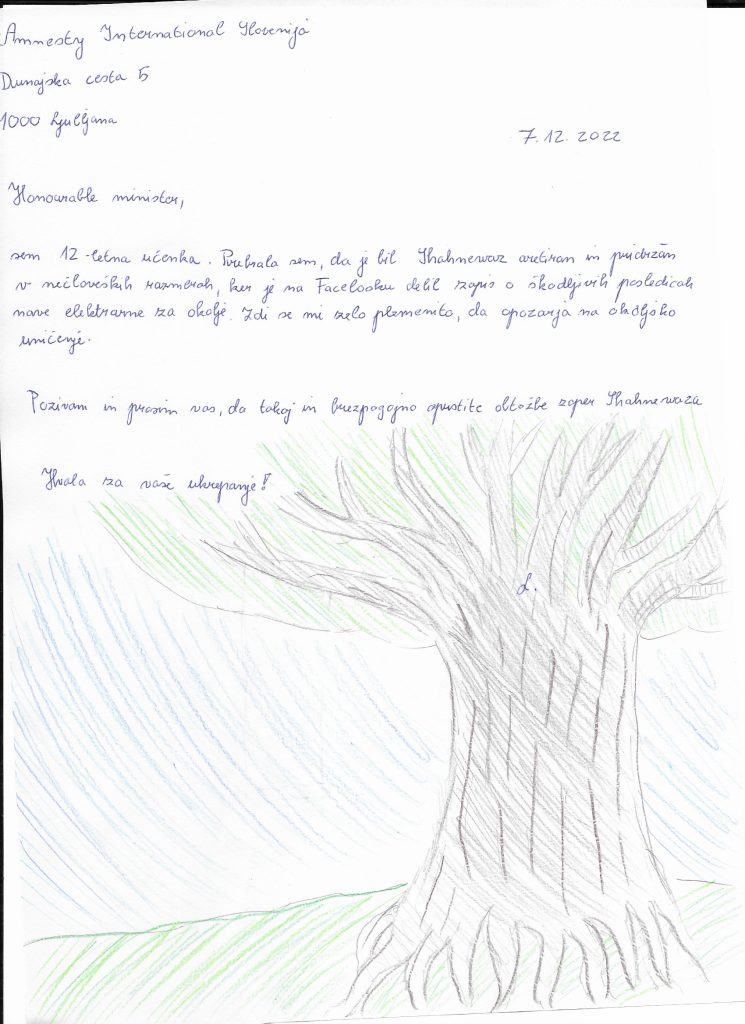 Amnesty International Slovenija
Dunajska cesta 5
1000 Ljubljana
7.12.2022
Honourable minister,
sem 12-letna učenka. Prebrala sem, da je bil Shahnewaz aretiran in pridržan
v nečloveških razmerah, ker je na Facebooku delil zapis o škodljivih posledicah
nove elektrarne za okolje. Zdi se mi zelo plemenito, da opozarja na okoljsko
uničenje.
Pozivam in prosim vas, da takoj in brezpogojno opustite obtožbe zoper Shahnewaza
Hvala za vaše ukrepanje!
L.